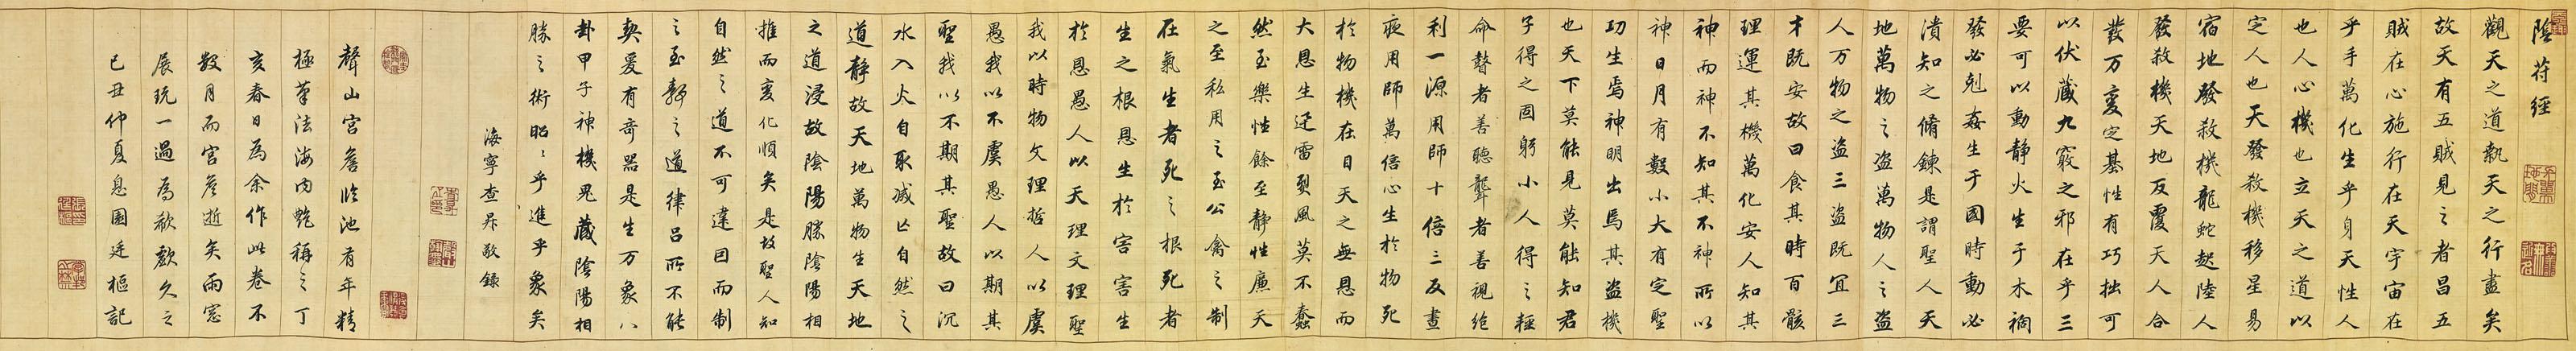 陰符經
觀天之道執天之行盡矣
故天有五賊見之者昌五
賊在心施行在天宇宙在
乎手萬化生乎身天性人
也人心機也立天之道以
定人也天發殺機移星易
宿地發殺機龍蛇起陸人
發殺機天地反覆天人合
發万變定基性有巧拙可
以伏藏九竅之邪在乎三
要可以動靜火生于木禍
發必剋姦生于國時動必
潰知之脩鍊是謂聖人天
地萬物之盜萬物人之盜
人万物之盜三盜既宜三
才既安故曰食其時百骸
理運其機萬化安人知其
神而神不知其不神所以
神日月有數小大有定聖
功生焉神明出焉其盜機
也天下莫能見莫能知君
子得之固躬小人得之輕
命瞽者善聽聾者善視絶
利一源用師十倍三反晝
夜用師萬倍心生於物死
於物機在目天之無恩而
大恩生迅雷烈風莫不蠢
然至樂性餘至靜性廉天
之至私用之至公禽之制
在氣生者死之根死者
生之根恩生於害害生
於恩愚人以天理文理聖
我以時物文理哲人以虞
愚我以不虞愚人以期其
聖我以不期其聖故曰沉
水入火自取滅亡自然之
道靜故天地萬物生天地
之道浸故陰陽勝陰陽相
推而變化順矣是故聖人知
自然之道不可違因而制
之至靜之道律呂所不能
契爰有奇器是生万象八
卦甲子神機鬼藏陰陽相
勝之術昭昭乎進乎象矣
海寧查昇敬錄
聲山宮詹臨池有年精
極筆法海内艷稱之丁
亥春日為余作此卷不
數月而宮詹逝矣雨窓
展玩一過為欷歔久之
己丑仲夏息園廷樞記